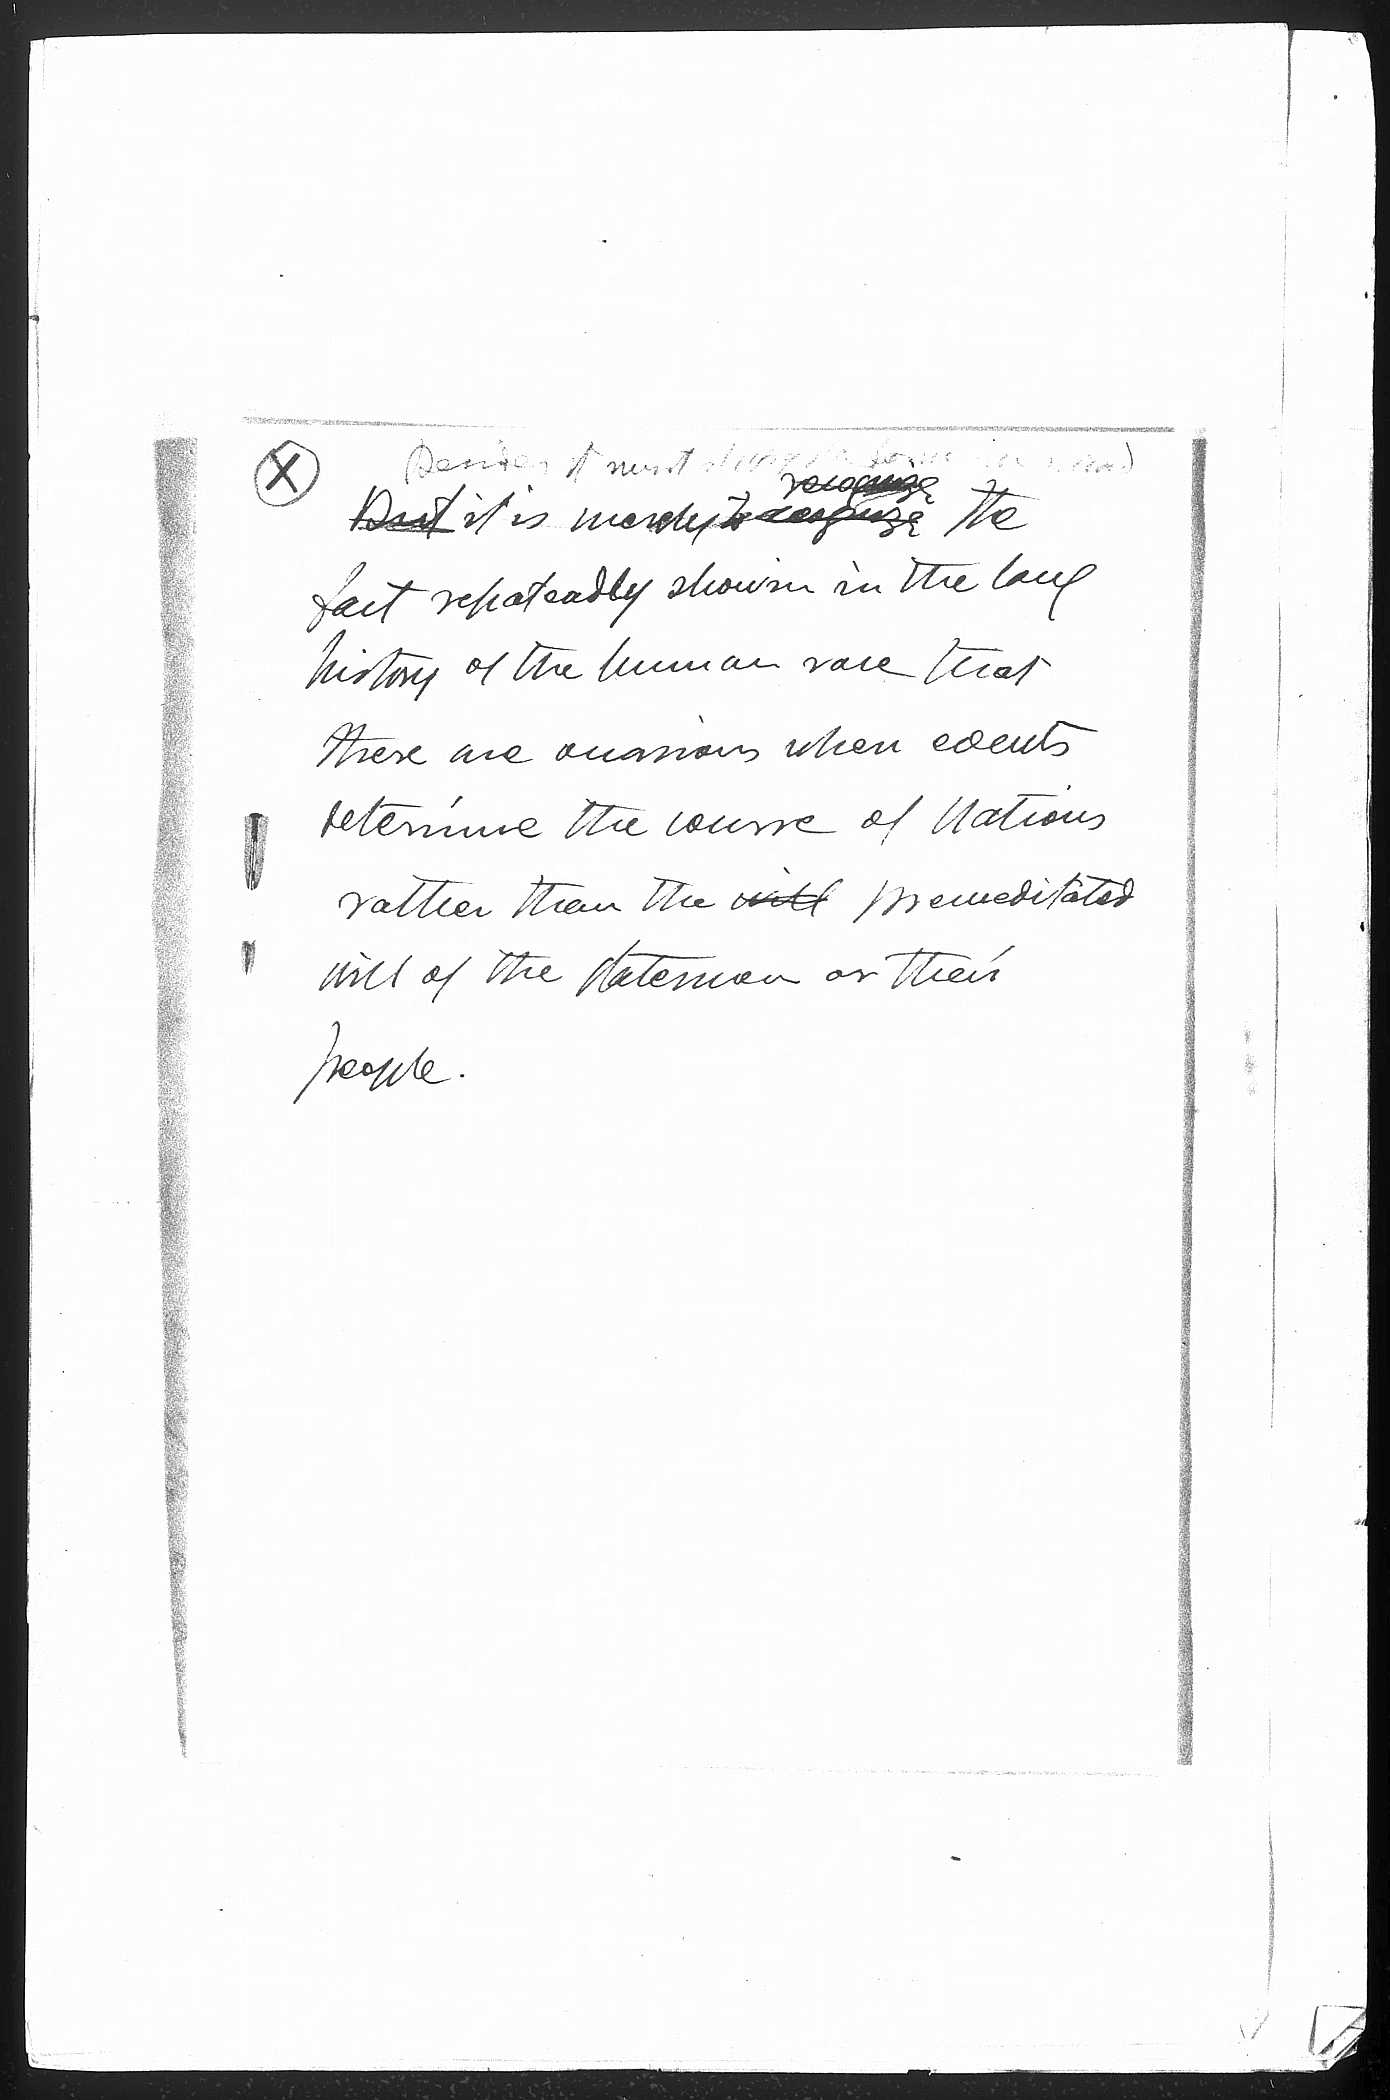 X
Besides it must always be borne in mind
But it is merely to recognize recognize the
fact repeatadly shown in the long
history of the human race that
there are occasions when events
determine the course of Nations
rather than the will premeditated
will of the statesman or their
people.